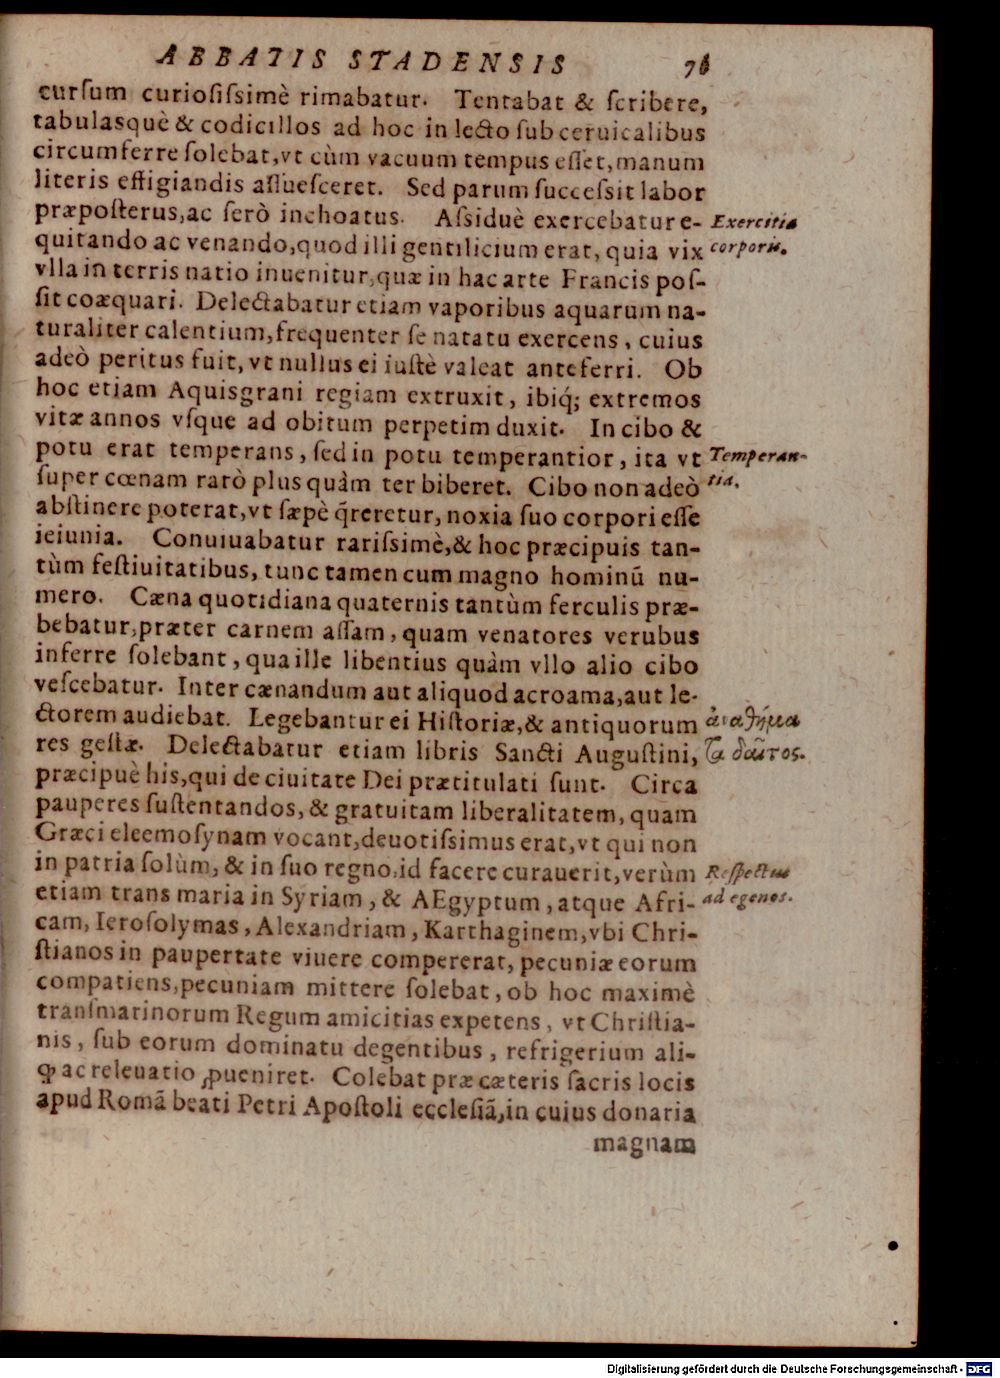 ABBATIS STADENSIS 76
cursum curiosissimè rimabatur. Tentabat & scribere,
tabulasquè & codicillos ad hoc in lecto sub ceruicalibus
circumferre solebat, vt cùm vacuum tempus esset, manum
literis effigiandis assuesceret. Sed parum successit labor
præposterus, ac serò inchoatus. Assiduè exercebatur e-
Exercitia
quitando ac venando, quod illi gentilicium erat, quia vix
corporis.
vlla in terris natio inuenitur, quæ in hac arte Francis pos-
sit coæquari. Delectabatur etiam vaporibus aquarum na-
turaliter calentium, frequenter se natatu exercens, cuius
adeò peritus fuit, vt nullus ei iustè valeat anteferri. Ob
hoc etiam Aquisgrani regiam extruxit, ibiq́; extremos
vitæ annos vsque ad obitum perpetim duxit. In cibo &
potu erat temperans, sed in potu temperantior, ita vt
Temperan-
super cœnam rarò plus quàm ter biberet. Cibo non adeò
tia.
abstinere poterat, vt sæpè q̃reretur, noxia suo corpori esse
ieiunia. Conuiuabatur rarissimè, & hoc præcipuis tan-
tùm festiuitatibus, tunc tamen cum magno hominũ nu-
mero. Cæna quotidiana quaternis tantùm ferculis præ-
bebatur, præter carnem assam, quam venatores verubus
inferre solebant, qua ille libentius quàm vllo alio cibo
vescebatur. Inter cænandum aut aliquod acroama, aut le-
ctorem audiebat. Legebantur ei Historiæ, & antiquorum
ἀναθήμα
res gestæ. Delectabatur etiam libris Sancti Augustini,
τα δαιτος.
præcipuè his, qui de ciuitate Dei prætitulati sunt. Circa
pauperes sustentandos, & gratuitam liberalitatem, quam
Græci eleemosynam vocant, deuotissimus erat, vt qui non
in patria solùm, & in suo regno, id facere curauerit, verùm
Respectus
etiam trans maria in Syriam, & AEgyptum, atque Afri-
ad egenos.
cam, Ierosolymas, Alexandriam, Karthaginem, vbi Chri-
stianos in paupertate viuere compererat, pecuniæ eorum
compatiens, pecuniam mittere solebat, ob hoc maximè
transmarinorum Regum amicitias expetens, vt Christia-
nis, sub eorum dominatu degentibus, refrigerium ali-
ꝙ ac releuatio ꝓueniret. Colebat præ cæteris sacris locis
apud Romã beati Petri Apostoli ecclesiã, in cuius donaria
magnam
Digitalisierung gefördert durch die Deutsche Forschungsgemeinschaft - DFG